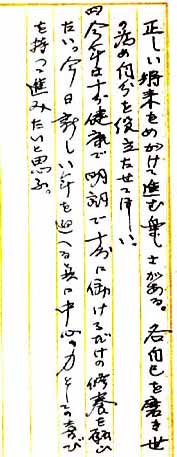 正しい将来をめがけて進む楽しさがある。各自己を磨き世
の為め何分を役立たせて洋しい。
四今年は尚健康で明朗で十分に働けるだけの修養を
たい。今日新しい年を迎へる共に中心の力としての喜び
を持つて進みたいと思ふ。